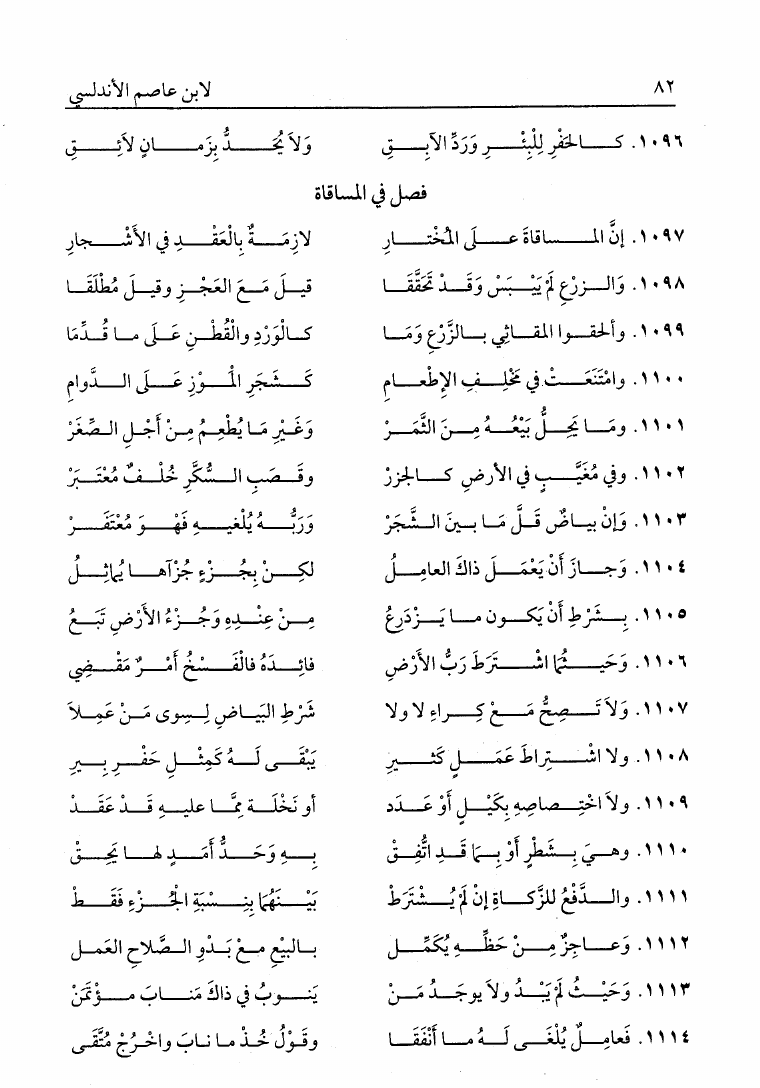 ٨٢ لابن عاصم الأندلسي
١٠٩٦. كَالحَفْرِ لِلْبِئْرِ وَرَدِّ الآبِقِ وَلاَ يُحَدُّ بِزَمَانٍ لاَئِقِ
فصل في المساقاة
١٠٩٧. إنَّ المساقاةَ عَلَى المُخْتارِ لازِمَةٌ بِالْعَقْدِ في الأَشْجارِ
١٠٩٨. وَالزرْعِ لَمْ يَيْبَسْ وَقَدْ تَحَقَّقَا قيلَ مَعَ العَجْزِ وقيلَ مُطْلَقَا
١٠٩٩. وألحقوا المقاثِي بالزَّرْعِ وَمَا كالْوَرْدِ والْقُطْنِ عَلَى ما قُدِّمَا
١١٠٠. وامْتَنَعَتْ في مُخْلِفِ الإِطْعامِ كَشَجَرِ الْمَوْزِ عَلَى الدَّوامِ
١١٠١. ومَا يَحِلُّ بَيْعُهُ مِنَ الثَّمَرْ وَغَيْرِ مَا يُطْعِمُ مِنْ أَجْلِ الصِّغَرْ
١١٠٢. وفي مُغَيَّبٍ في الأرضِ كالجزرْ وقَصَبِ السُّكَّرِ خُلْفٌ مُعْتَبَرْ
١١٠٣. وَإنْ بياضٌ قَلَّ مَا بينَ الشَّجَرْ وَرَبُّهُ يُلْغيهِ فَهْوَ مُغْتَفَرْ
١١٠٤. وَجازَ أَنْ يَعْمَلَ ذاكَ العامِلُ لكِنْ بِجُزْءٍ جُزْآها يُماثِلُ
١١٠٥. بِشَرْطِ أَنْ يَكون ما يَزْدَرِعُ مِنْ عِنْدِهِ وَجُزْءُ الأرْضِ تَبَعُ
١١٠٦. وَحَيثُما اشْتَرَطَ رَبُّ الأَرْضِ فائِدَهُ فالْفَسْخُ أَمْرٌ مَقْضِي
١١٠٧. وَلاَ تَصِحُّ مَعْ كِراءٍ لا ولا شَرْطِ البَياضِ لِسِوى مَنْ عَمِلاَ
١١٠٨. ولا اشْتِراطِ عَمَلٍ كَثيرِ يَبْقَى لَهُ كَمِثْلِ حَفْرِ بيرِ
١١٠٩. ولاَ اخْتِصاصِهِ بِكَيْلٍ أَوْ عَدَد أو نَخْلَةٍ مِمَّا عليهِ قَدْ عَقَدْ
١١١٠. وهيَ بِشَطْرٍ أَوْ بِمَا قَدِ اتُّفِقْ بِهِ وَحَدُّ أَمَدٍ لها يَحِقْ
١١١١. والدَّفْعُ للزَّكاةِ إنْ لَمْ يُشْتَرَطْ بَيْنَهُمَا بِنِسْبَةِ الْجُزْءِ فَقَطْ
١١١٢. وَعاجِزٌ مِنْ حَظِّهِ يُكَمِّلُ بالبَيْعِ معْ بَدْوِ الصَّلاحِ العَمل
١١١٣. وَحَيْثُ لَمْ يَبْدُ ولاَ يوجَدُ مَنْ يَنوبُ في ذاكَ مَنابَ مؤْتَمَنْ
١١١٤. فَعامِلٌ يُلْغَى لَهُ ما أَنْفَقَا وقَوْلُ خُذْ ما نابَ واخْرُجْ مُتَّقَى